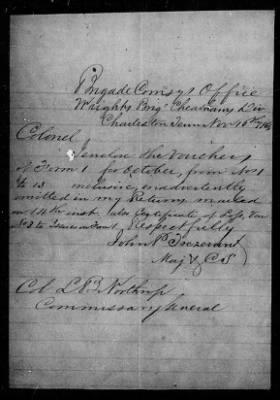 Brigade Comsy's Office
Wrights Brig Cheathams Div
Charleston Tenn Nov 16th
Colonel
I enclose the Vouchers
of Form 1 for October, from No 1
to 13 inclusive, inadvertently
omitted in my Returns mailed
on 14th inst also Certificate of Loss,
Respectfully
John
Maj & C S
Col L B Northrop
Commissary General